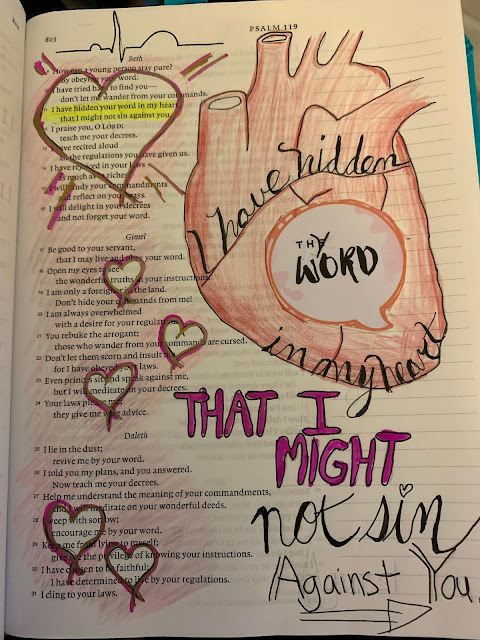 803
PSALM 119
Beth
How can a young person stay pure?
By obeying your word.
I have tried hard to find you—
don't let me wander from your commands.
I have hidden your word in my heart,
that I might not sin against you.
I praise you, O LORD;
teach me your decrees.
I have recited aloud
all the regulations you have given us.
I have rejoiced in your laws
as much as in riches.
I will study your commandments
and reflect on your ways.
I will delight in your decrees
and not forget your word.
Gimel
17 Be good to your servant,
that I may live and obey your word.
18 Open my eyes to see
the wonderful truths in your instructions.
19 I am only a foreigner in the land.
Don't hide your commands from me!
20 I am always overwhelmed
with a desire for your regulations.
21 You rebuke the arrogant;
those who wander from your commands are cursed.
22 Don't let them scorn and insult me,
for I have obeyed your laws.
23 Even princes sit and speak against me,
but I will meditate on your decrees.
24 Your laws please me;
they give me wise advice.
Daleth
25 I lie in the dust;
revive me by your word.
26 I told you my plans, and you answered.
Now teach me your decrees.
27 Help me understand the meaning of your commandments,
and I will meditate on your wonderful deeds.
28 I weep with sorrow;
encourage me by your word.
29 Keep me from lying to myself;
give me the privilege of knowing your instructions.
30 I have chosen to be faithful;
I have determined to live by your regulations.
31 I cling to your laws.
I have hidden
THY
WORD
in my heart
THAT I
MIGHT
not sin
Against You.